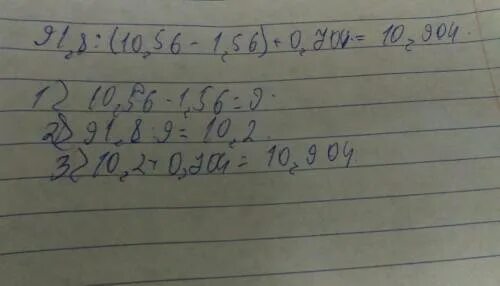 91,8:(10,56-1,56)+0,704=10,904.
1) 10,56-1,56=9.
2) 91,8:9=10,2.
3) 10,2+0,704=10,904